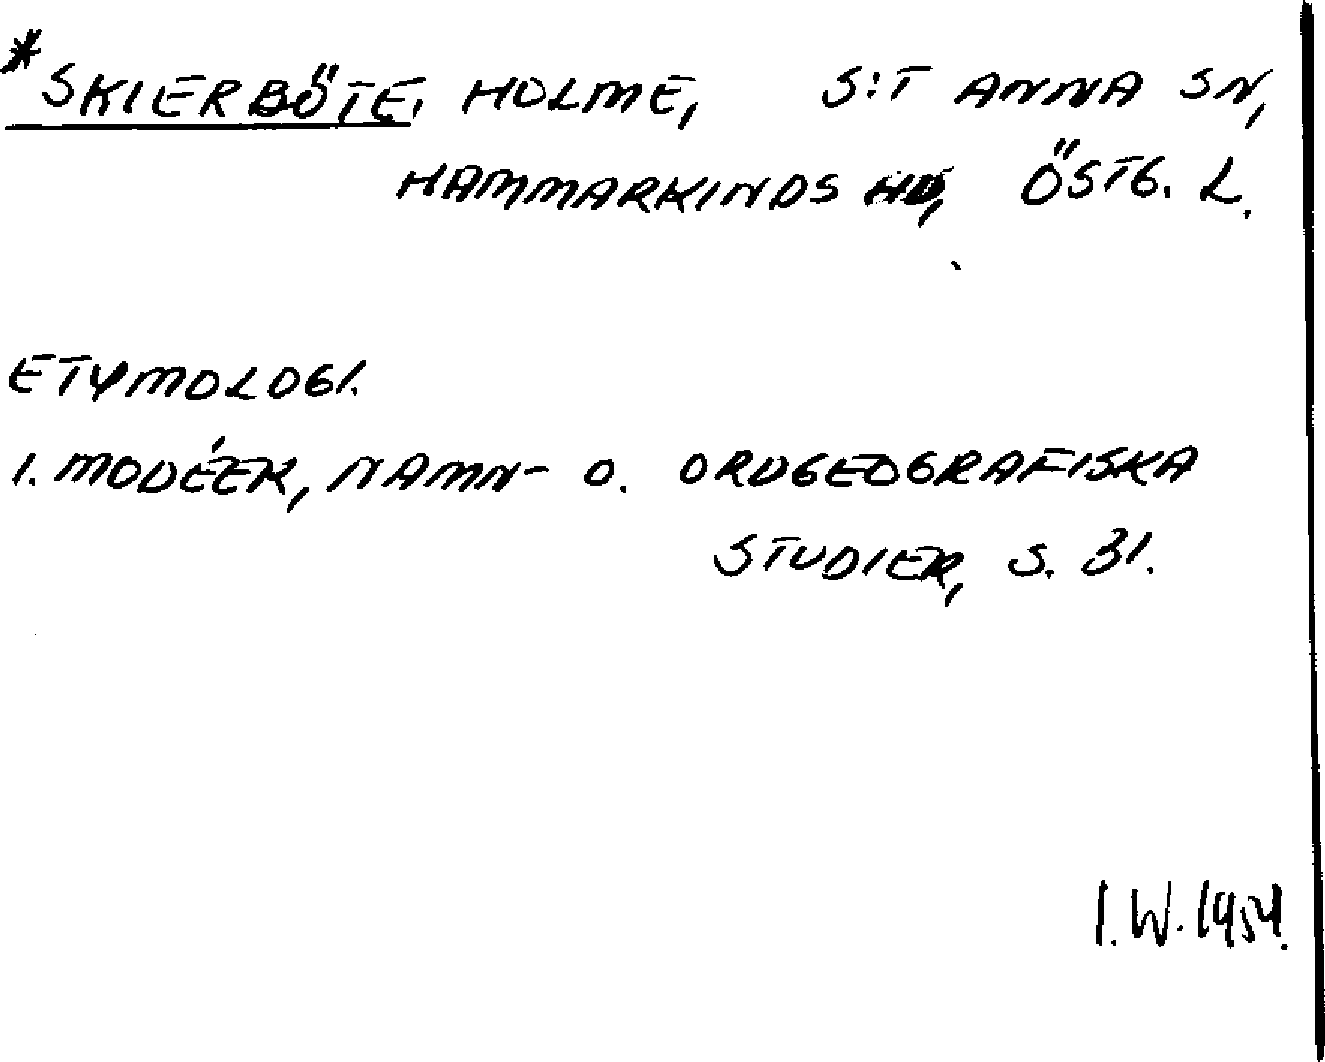 *SKIERBÖTE, HOLME, S:T ANNA SN,
HAMMARKINDS HD, ÖSTG. L.
ETYMOLOGI.
I. MODÉER, NAMN- O. ORDGEOGRAFISKA
STUDIER, S. 31.
I.W. 1954.